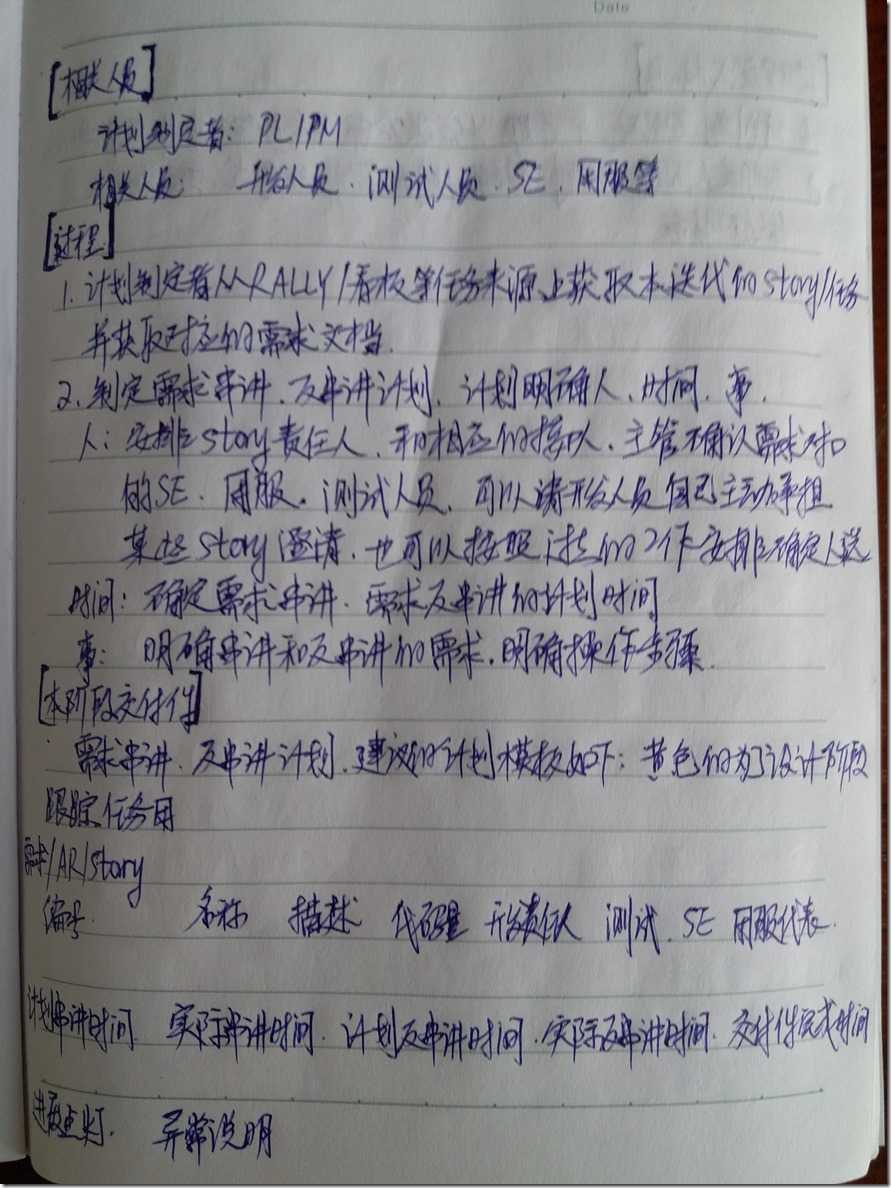 Date
[相关人员]
计划制定者: PL/PM
相关人员: 开发人员、测试人员、SE、用服等
[过程]
1. 计划制定者从RALLY/看板等任务来源上获取本迭代的story/任务
并获取对应的需求文档.
2. 制定需求串讲、反串讲计划, 计划明确人、时间、事.
人: 安排story责任人, 和相应的接口人、主管确认需求对口
的SE、用服、测试人员, 可以请开发人员自己主动承担
某些story澄清, 也可以按照过去的工作安排确定人选
时间: 确定需求串讲、需求反串讲的计划时间
事: 明确串讲和反串讲的需求, 明确操作步骤.
[本阶段交付件]
需求串讲、反串讲计划, 建议的计划模板如下: 黄色的为了设计阶段
跟踪任务用
需求/AR/story
编号. 名称 描述 代码量 开发责任人 测试、SE 用服代表.
计划串讲时间 实际串讲时间. 计划反串讲时间. 实际反串讲时间. 交付件完成时间
进展点灯. 异常说明